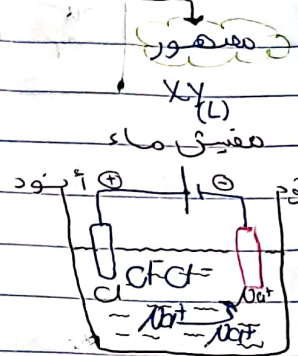 مصهور
XY(L)
مفيش ماء
أنود ⊕ ⊖
Cl⁻ Cl⁻
Cl Na⁺
Na⁺ Na⁺